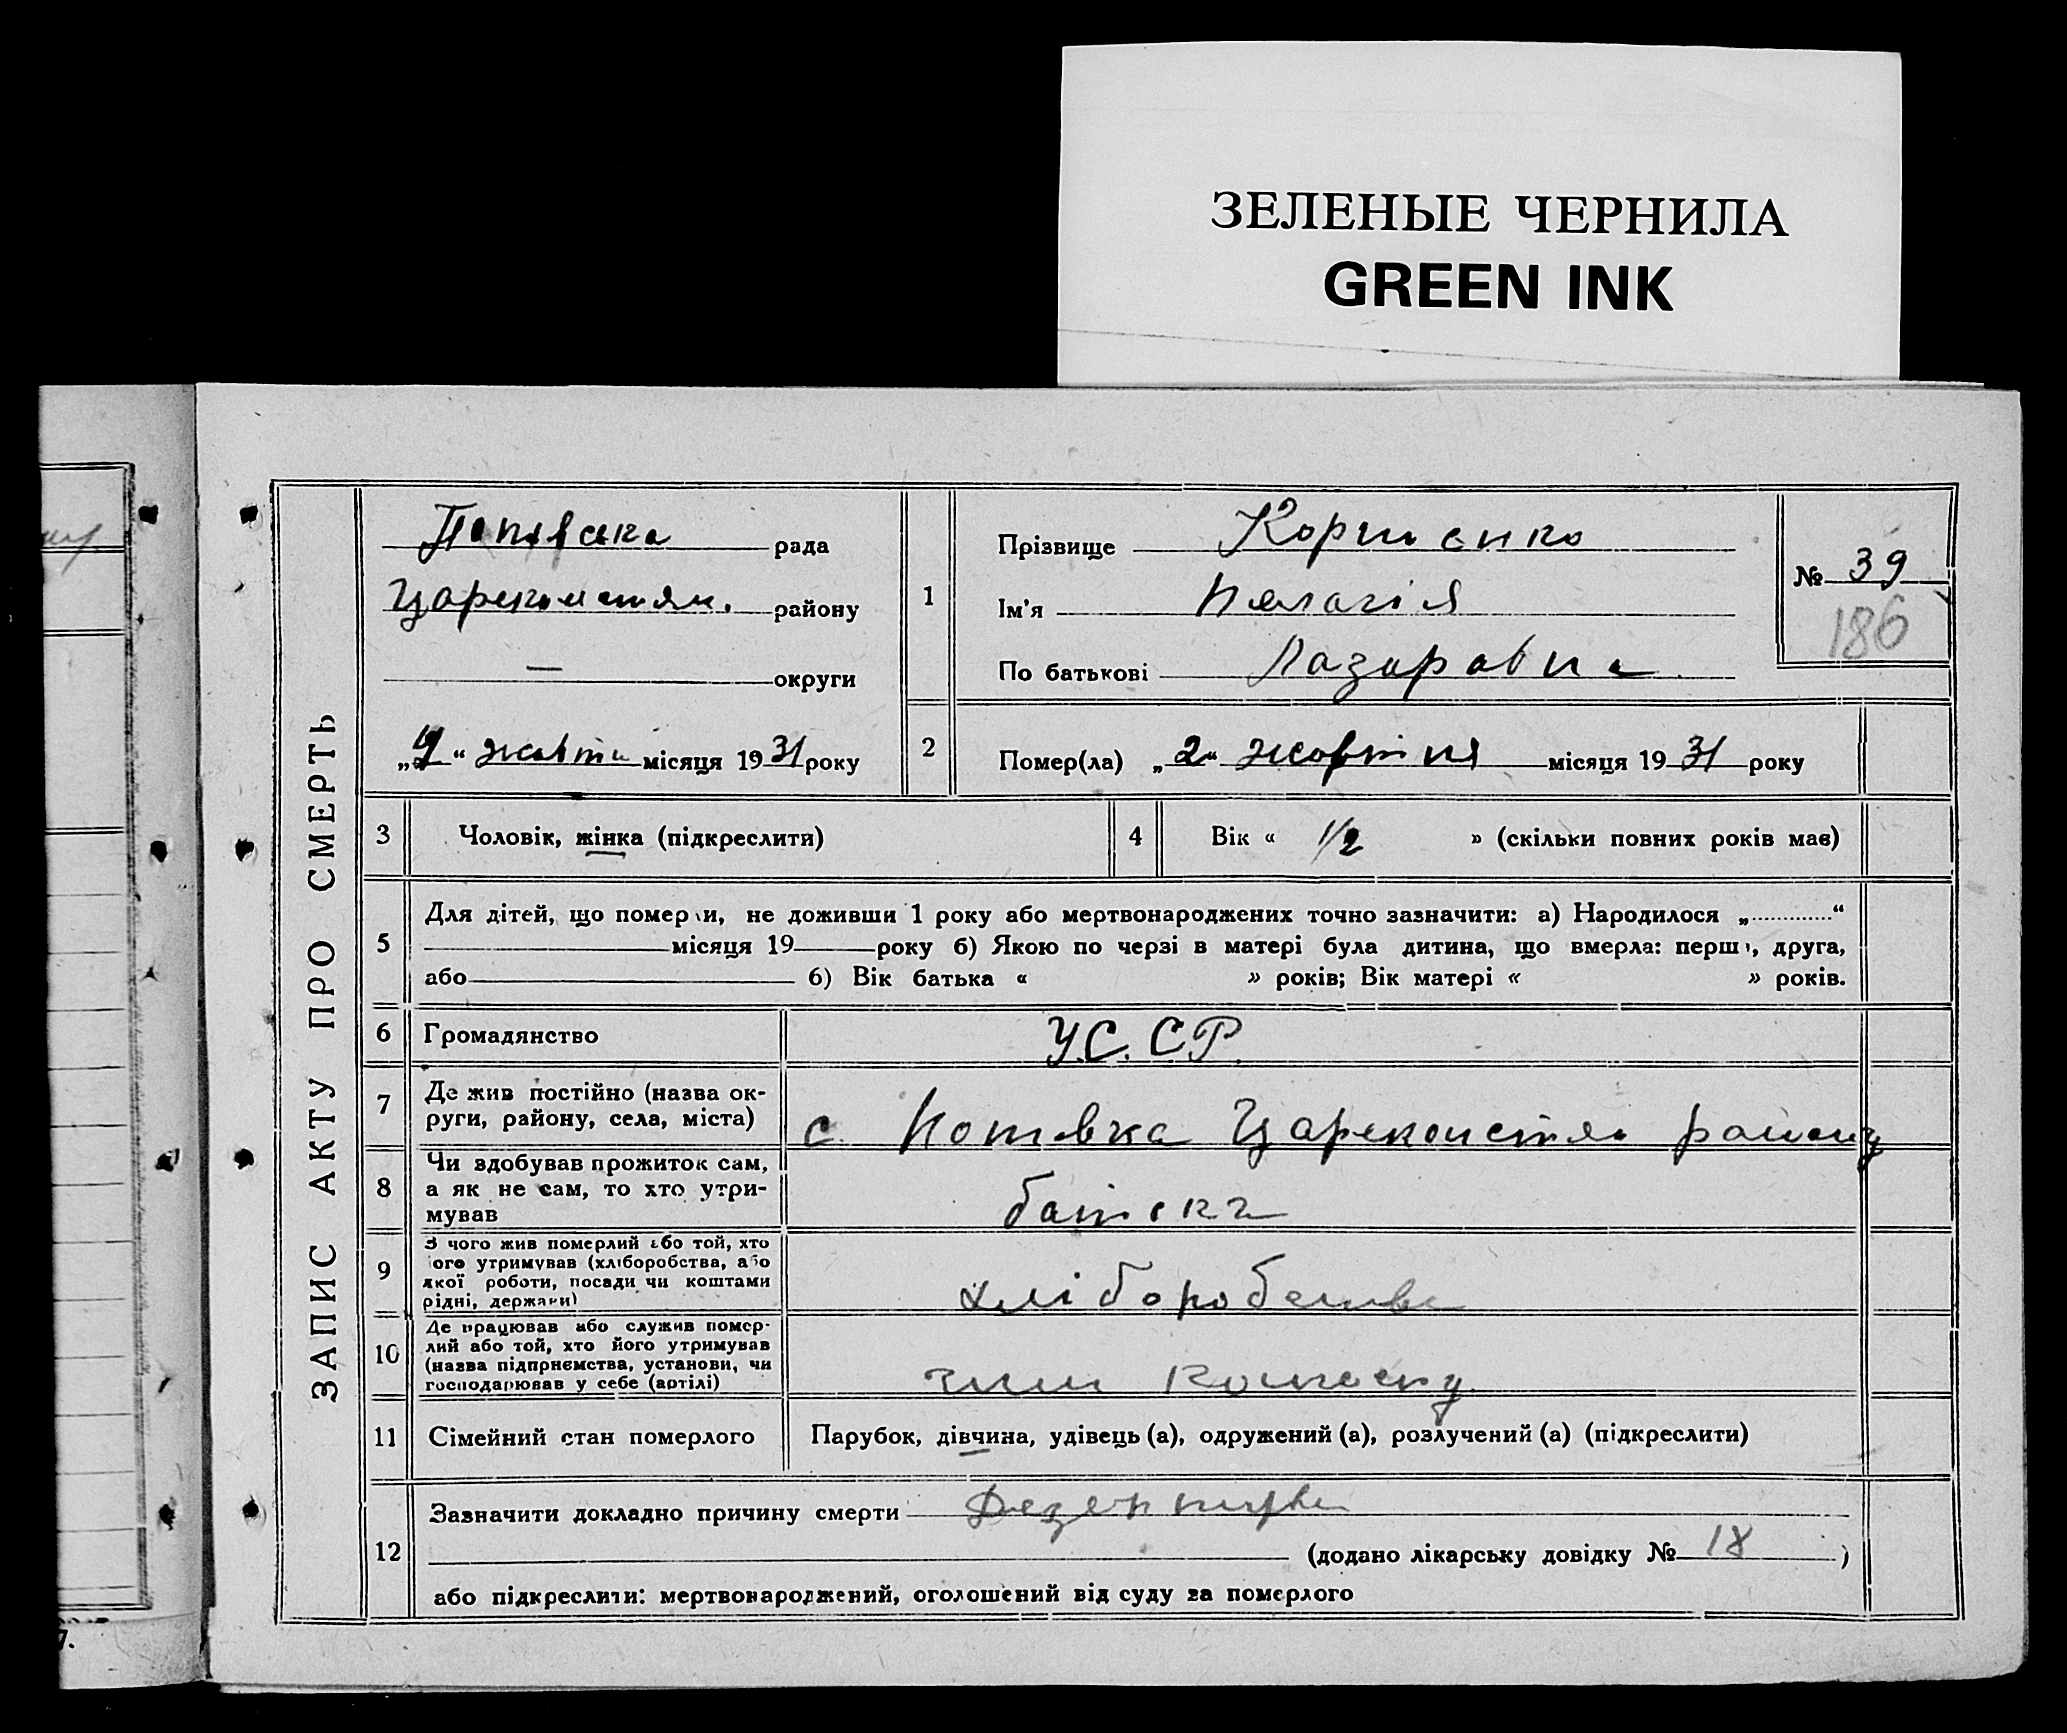 ЗЕЛЕНЫЕ ЧЕРНИЛА
GREEN INK
ЗАПИС АКТУ ПРО СМЕРТЬ
Попівська рада
району
— округи
" місяця 1931 року
1
Прізвище
Ім'я Пелагія
По батькові Лазаровна
№ 39
186
2
Помер(ла) „2" жовтня місяця 1931 року
3
Чоловік, жінка (підкреслити)
4
Вік « 1/2 » (скільки повних років має)
5
Для дітей, що померли, не доживши 1 року або мертвонароджених точно зазначити: а) Народилося „ “
місяця 19 року б) Якою по черзі в матері була дитина, що вмерла: перша, друга,
або б) Вік батька « » років; Вік матері « » років.
6
Громадянство
У.С.С.Р.
7
Де жив постійно (назва ок-
руги, району, села, міста)
с. району
8
Чи здобував прожиток сам,
а як не сам, то хто утри-
мував
9
З чого жив померлий або той, хто
його утримував (хліборобства, або
якої роботи, посади чи коштами
рідні, держави)
хліборобства
10
Де працював або служив помер-
лий або той, хто його утримував
(назва підприємства, установи, чи
господарював у себе (артілі)
11
Сімейний стан померлого
Парубок, дівчина, удівець (а), одружений (а), розлучений (а) (підкреслити)
12
Зазначити докладно причину смерти
(додано лікарську довідку № 18 )
або підкреслити: мертвонароджений, оголошений від суду за померлого
7.